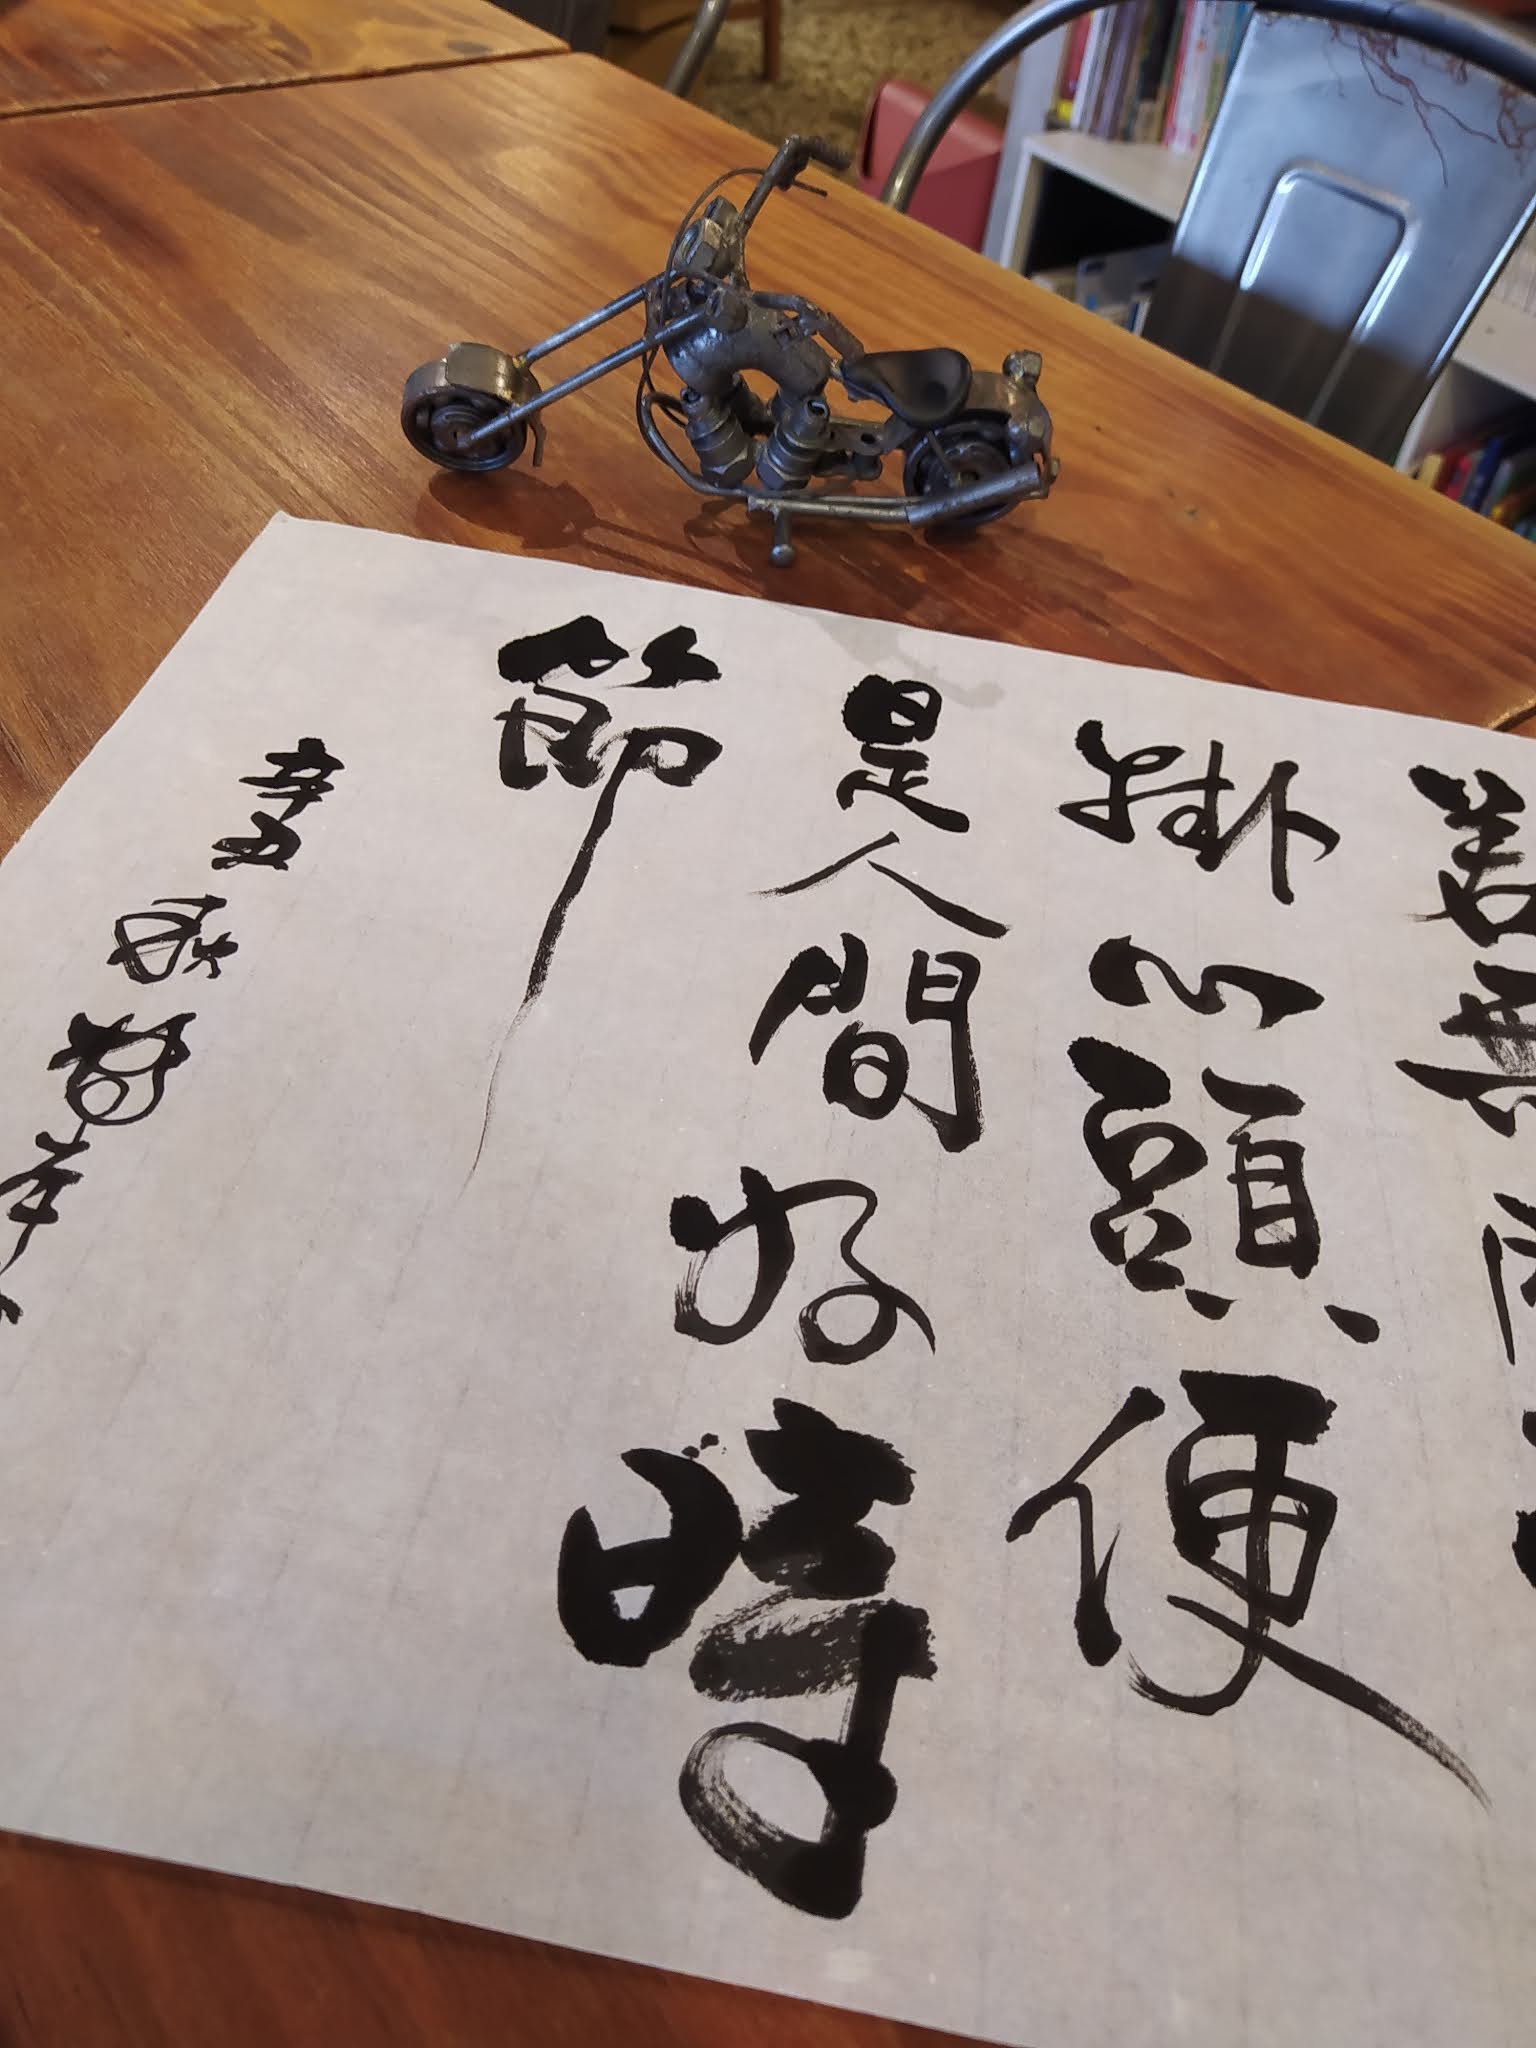 若無
掛心頭便
是人間好時
節
辛丑